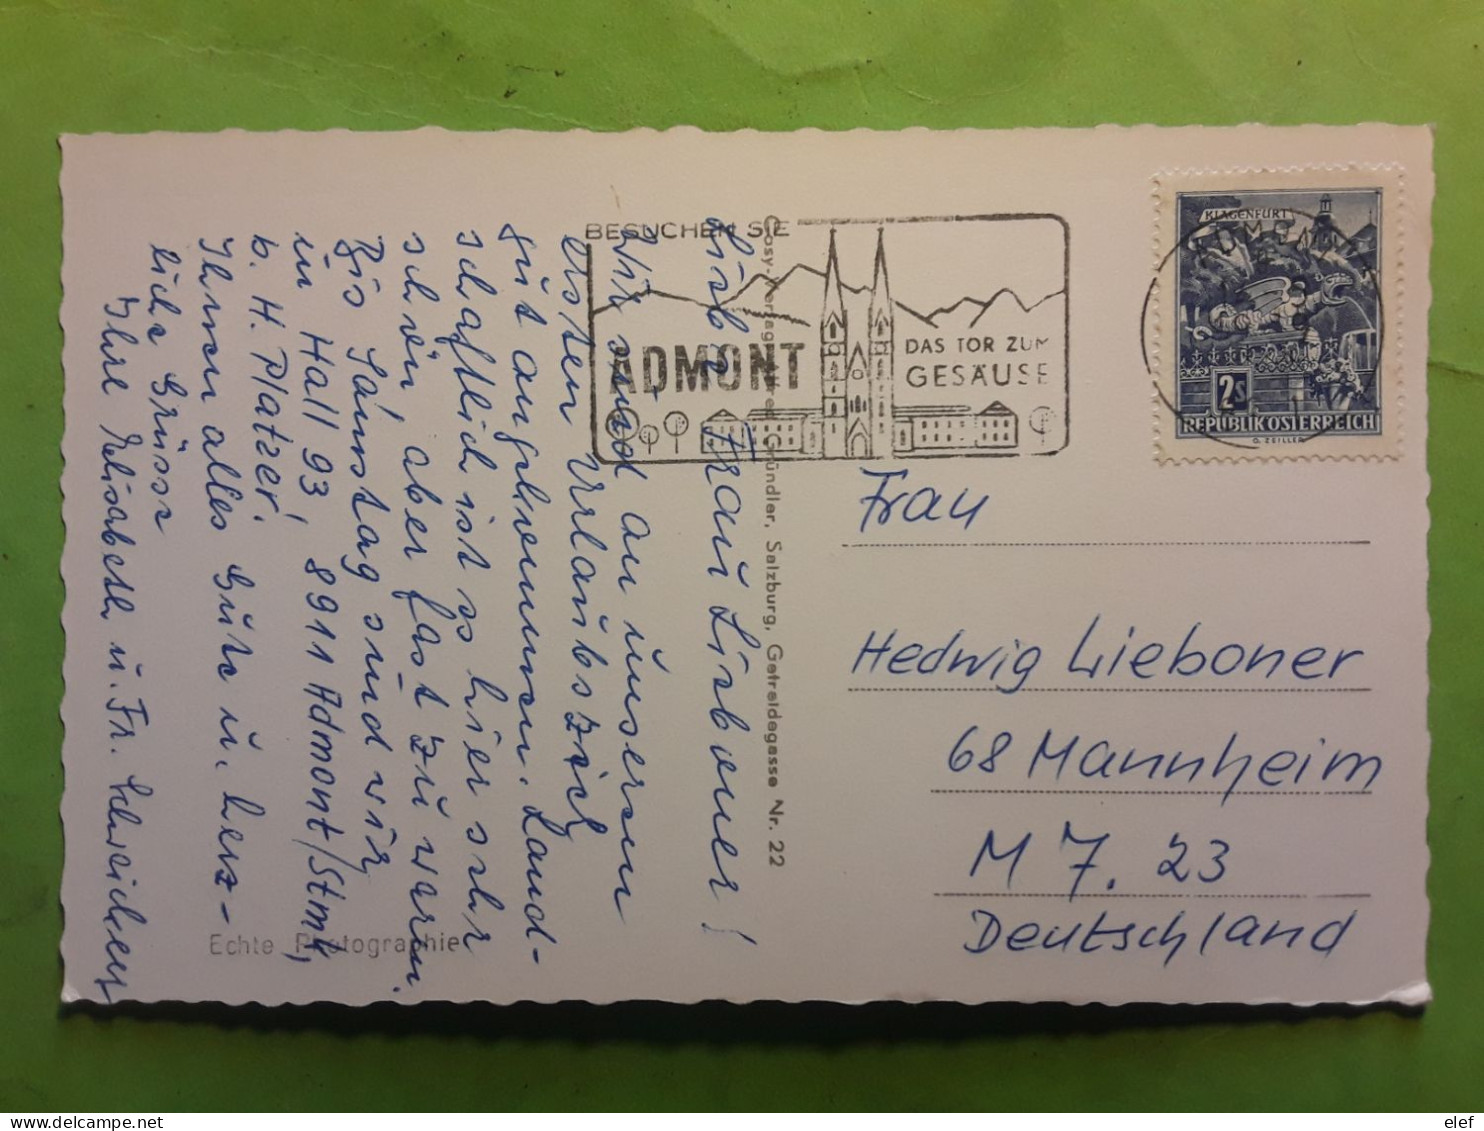 BESUCHEN SIE
ADMONT
DAS TOR ZUM
GESÄUSE
KLAGENFURT
2S
REPUBLIK ÖSTERREICH
O. ZEILLER
Liebe Frau Lieboner!
Wir sind an unserem
ersten Urlaubsziel
gut angekommen. Land-
schaftlich ist es hier sehr
schön, aber fast zu warm.
Bis Samstag sind wir
in Hall 93, 8911 Admont/Stmk,
b. H. Platzer.
Ihnen alles Gute u. herz-
liche Grüsse
Ihre Elisabeth u. Fr.
Cosy Verlag Gründler, Salzburg, Getreidegasse Nr. 22
Echte Photographie
Frau
Hedwig Lieboner
68 Mannheim
M 7. 23
Deutschland
elef